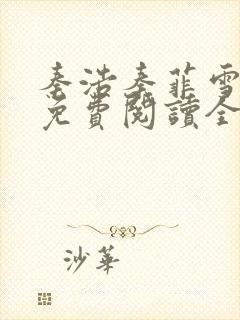 秦浩秦菲雪
免費閱讀全
沙華